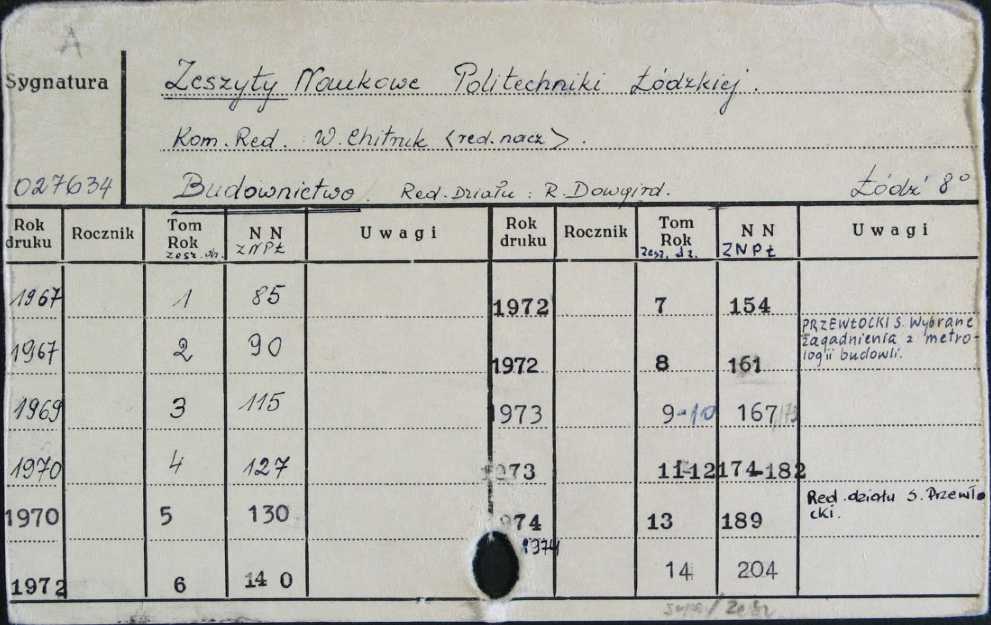 A
Sygnatura
Zeszyty Naukowe Politechniki Łódzkiej.
Kom. Red. W. Chitruk <red. nacz>.
027634 Budownictwo. Red. Działu: R. Dowgird. Łódź 8°
Rok druku Rocznik Tom Rok zesz. dz. N N ZNPŁ Uwagi Rok druku Rocznik Tom Rok zesz. dz. N N ZNPŁ Uwagi
1967 1 85 1972 7 154
1967 2 90 1972 8 161 PRZEWŁOCKI S. Wybrane zagadnienia z metrologii budowli.
1969 3 115 1973 9-10 167/
1970 4 127 1973 11-12 174-182
1970 5 130 1974 13 189 Red. działu S. Przewłocki.
1972 6 140 1974 14 204